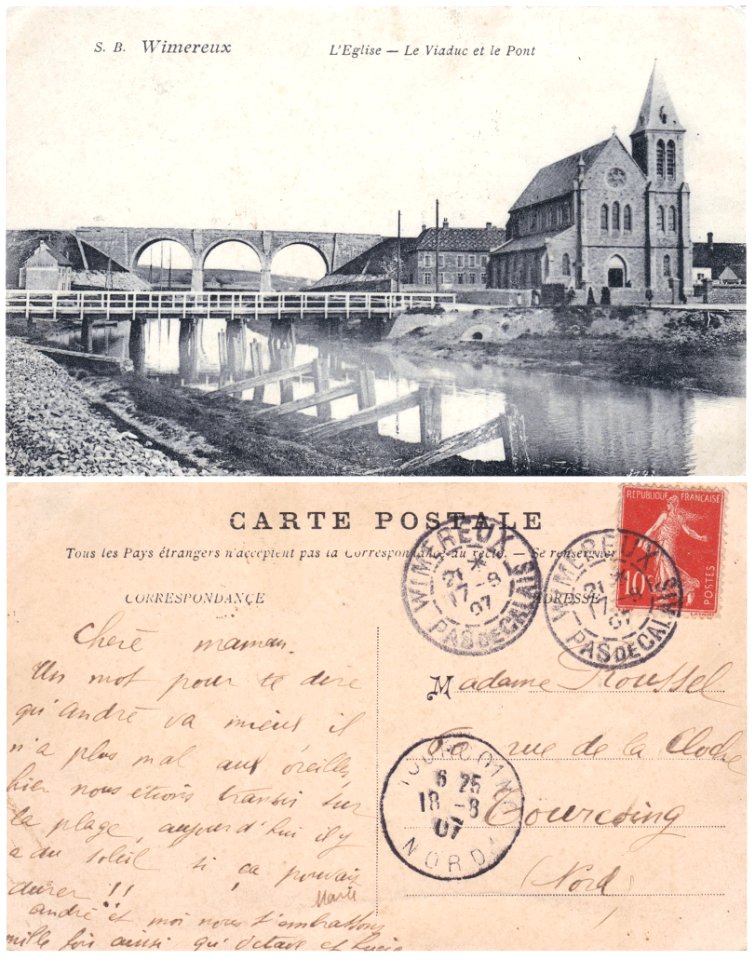 S. B. Wimereux
L'Eglise — Le Viaduc et le Pont
CARTE POSTALE
Tous les Pays étrangers n'acceptent pas la Correspondance au recto. — Se renseigner
CORRESPONDANCE
ADRESSE
REPUBLIQUE FRANÇAISE
10c
POSTES
WIMEREUX
21 *
17 -8
07
PAS DE CALAIS
WIMEREUX
21 *
17
07
PAS DE CALAIS
Chère maman.
Un mot pour te dire
qu'André va mieux il
n'a plus mal aux oreilles,
hier nous étions transis sur
la plage, aujourd'hui il y
a du soleil si ça pouvait
durer !!
Marie
André et moi nous t'embrassons
mille fois ainsi qu'Octave et
Madame Roussel
rue de la Cloche
Tourcoing
(Nord)
TOURCOING
6 25
18 -8
07
NORD